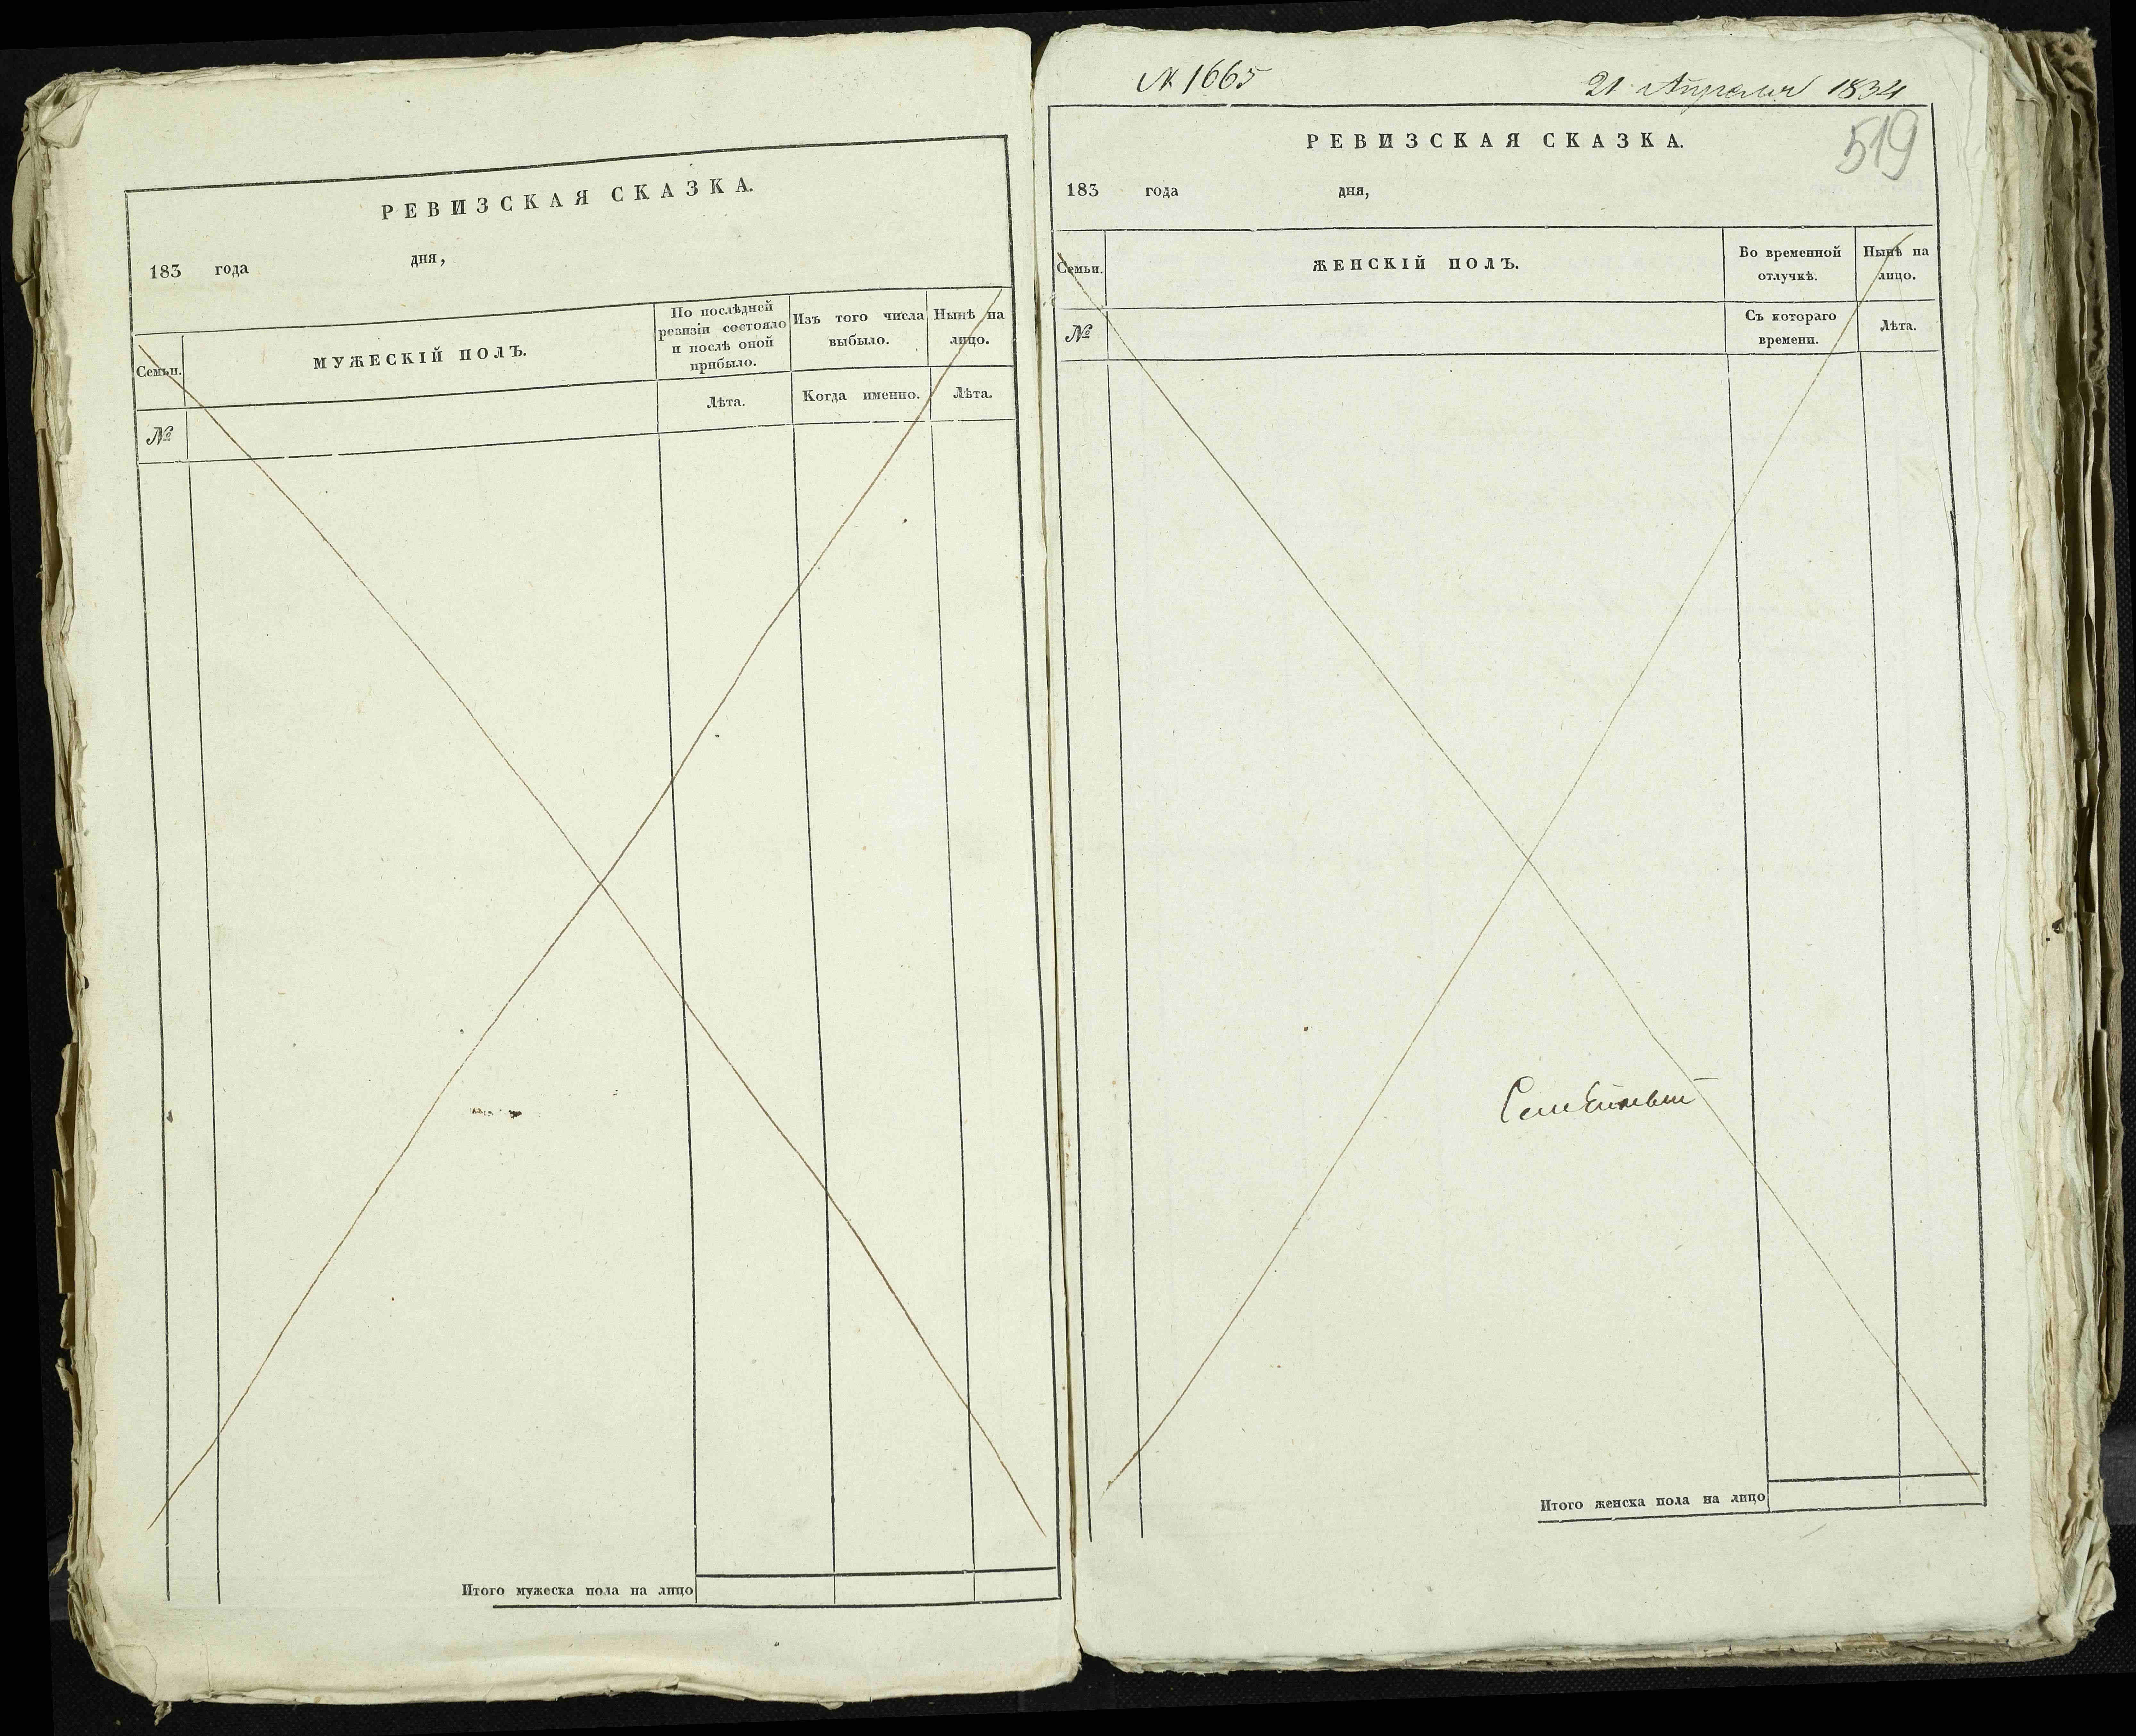 РЕВИЗСКАЯ СКАЗКА.
183 года дня,
Семьи.
МУЖЕСКІЙ ПОЛЪ.
По послѣдней
ревизіи состояло
и послѣ оной
прибыло.
Изъ того числа
выбыло.
Нынѣ на
лицо.
№
Лѣта.
Когда именно.
Лѣта.
Итого мужеска пола на лицо
№ 1665
21 Апреля 1834
519
РЕВИЗСКАЯ СКАЗКА.
183 года дня,
Семьи.
ЖЕНСКІЙ ПОЛЪ.
Во временной
отлучкѣ.
Нынѣ на
лицо.
№
Съ котораго
времени.
Лѣта.
Итого женска пола на лицо